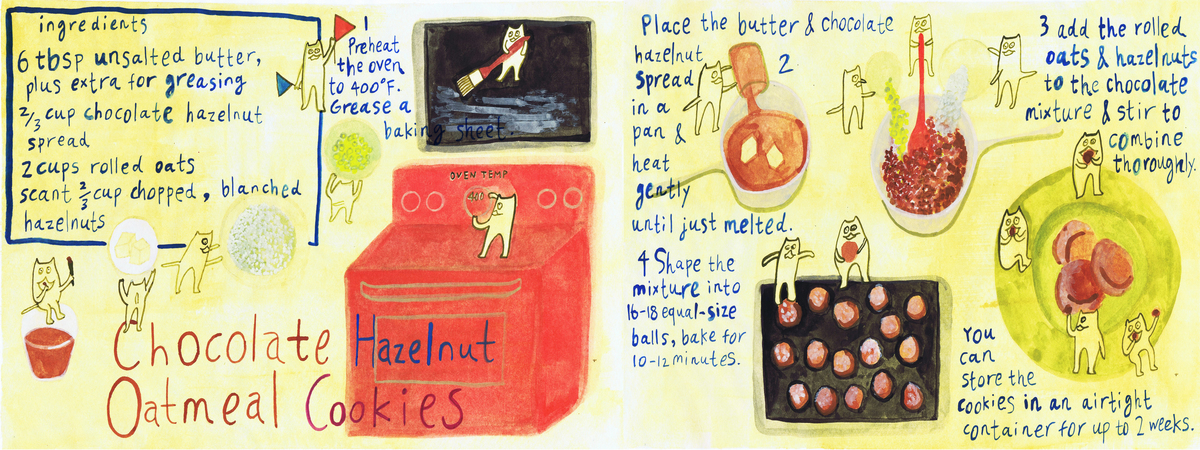 ingredients
6 tbsp unsalted butter,
plus extra for greasing
2/3 cup chocolate hazelnut
spread
2 cups rolled oats
scant 2/3 cup chopped, blanched
hazelnuts
1
Preheat
the oven
to 400°F.
Grease a
baking sheet.
OVEN TEMP
400
Chocolate Hazelnut
Oatmeal Cookies
Place the butter & chocolate
hazelnut
spread
in a
pan &
heat
gently
until just melted.
2
3 add the rolled
oats & hazelnuts
to the chocolate
mixture & stir to
combine
thoroughly.
4 Shape the
mixture into
16-18 equal-size
balls, bake for
10-12 minutes.
You
can
store the
cookies in an airtight
container for up to 2 weeks.